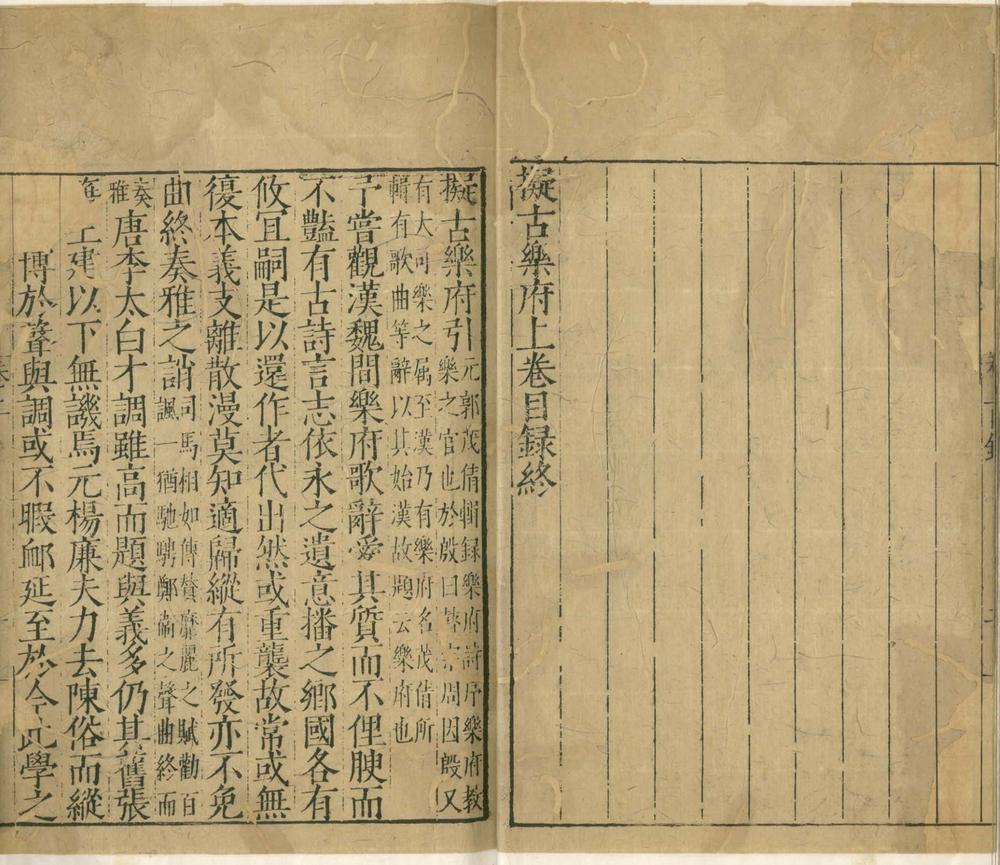 擬古樂府上卷目録終
擬古樂府引
元郭茂倩輯録樂府詩序樂府教
樂之官也於殷曰瞽宗周因殷又
有大司樂之属至漢乃有樂府名茂倩所
輯有歌曲等辭以其始漢故題云樂府也
予嘗觀漢魏間樂府歌辭愛其質而不俚腴而
不豔有古詩言志依永之遺意播之鄉國各有
攸宜嗣是以還作者代出然或重襲故常或無
復本義支離散漫莫知適歸縱有所發亦不免
曲終奏雅之誚
司馬相如傳賛靡麗之賦勸百
諷一猶馳騁鄭衞之聲曲終而
奏
雅
唐李太白才調雖高而題與義多仍其舊張
王建以下無譏焉元楊廉夫力去陳俗而縱
博於聲與調或不暇䘏延至於今此學之